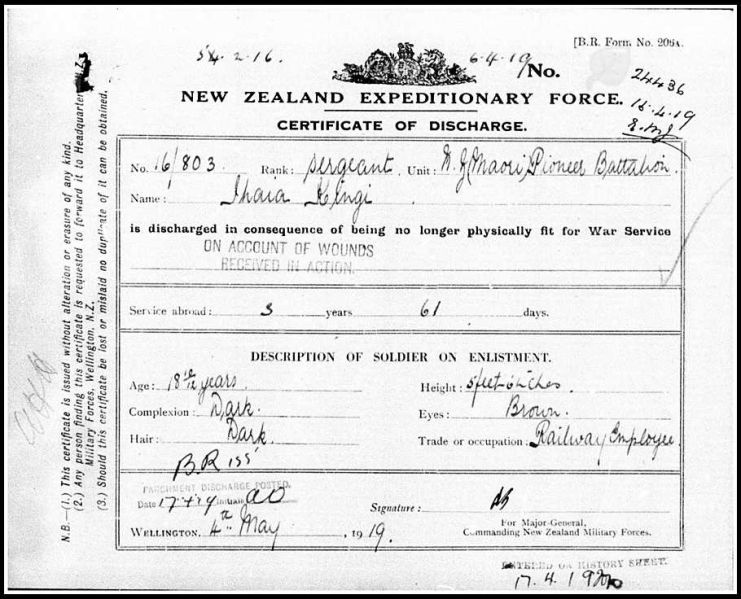 [B.R. Form No. 206A.
2.16.
6.4.19
No.
24436
NEW ZEALAND EXPEDITIONARY FORCE.
4.19
CERTIFICATE OF DISCHARGE.
No. 16/803 Rank: Sergeant Unit: N.Z. (Maori) Pioneer Battalion.
Name: Ihaia Kingi
is discharged in consequence of being no longer physically fit for War Service
ON ACCOUNT OF WOUNDS
RECEIVED IN ACTION.
Service abroad: 3 years 61 days.
DESCRIPTION OF SOLDIER ON ENLISTMENT.
Age: 18 years. Height: 5 feet 6 inches
Complexion: Dark. Eyes: Brown.
Hair: Dark Trade or occupation: Railway Employee
B.R. 155
PARCHMENT DISCHARGE POSTED.
Date 17 4 19 Initials
Signature:
WELLINGTON, 4th May 1919.
For Major-General,
Commanding New Zealand Military Forces.
ENTERED ON HISTORY SHEET.
17.4.19
N.B.—(1.) This certificate is issued without alteration or erasure of any kind.
(2.) Any person finding this certificate is requested to forward it to Headquarters N.Z.
Military Forces, Wellington, N.Z.
(3.) Should this certificate be lost or mislaid no duplicate of it can be obtained.